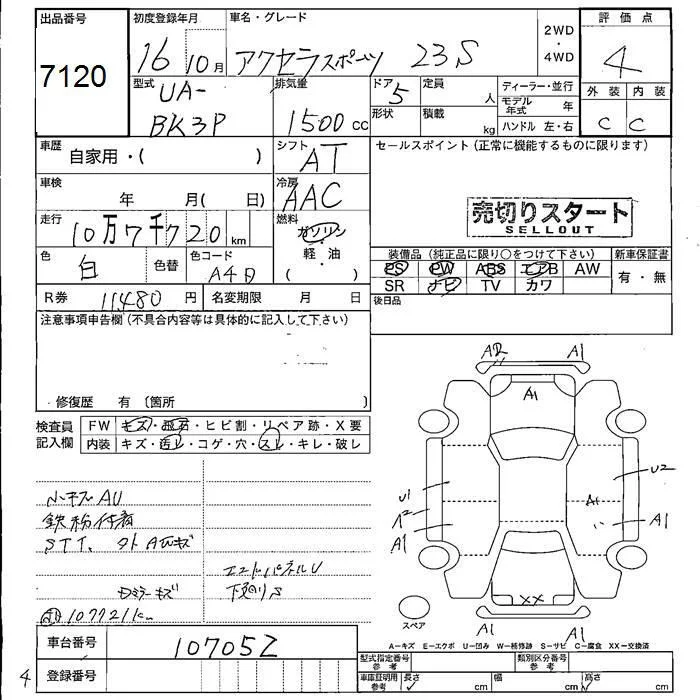 出品番号 初度登録年月 車名・グレード 2WD ・ 4WD 評価点
7120 16 10月 アクセラスポーツ 23S 4
型式 UA-BK3P 排気量 1500 cc ドア 5 定員 人 ディーラー・並行 外装 内装
形状 積載 kg モデル年式 年 C C
ハンドル 左・右
車歴 自家用・( ) シフト AT セールスポイント (正常に機能するものに限ります)
車検 年 月( 日) 冷房 AAC
売切りスタート
SELLOUT
走行 10万7千720 km 燃料 ガソリン・軽・油 ( )
装備品 (純正品に限り○をつけて下さい) 新車保証書
色 白 色替 色コード A4D PS PW ABS エアB AW 有・無
SR ナビ TV カワ
R券 11480 円 名変期限 月 日 後日品
注意事項申告欄 (不具合内容等は具体的に記入して下さい)
修復歴 有 〔箇所 〕
検査員記入欄 FW キズ・飛石・ヒビ割・リペア跡・X要
内装 キズ・汚レ・コゲ・穴・スレ・キレ・破レ
A2 A1
A1
U1 U2
A2 A1
A1 A1
XX
A1 A1
小キズAU
鉄粉付着
STT、
エンドパネルU
下廻りS
107721km
スペア
A=キズ E=エクボ U=凹み W=補修跡 S=サビ C=腐食 XX=交換済
車台番号 107052
登録番号
型式指定番号 参考 類別区分番号 参考
車庫証明用 参考 長さ cm 幅 cm 高さ cm
4